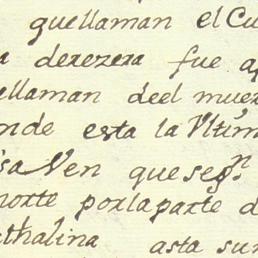 quellaman el Cu
a derezera fue a
ellaman deel mue
nde esta la Ultim
sa Ven que segn
norte por la parte d
thalina asta sur